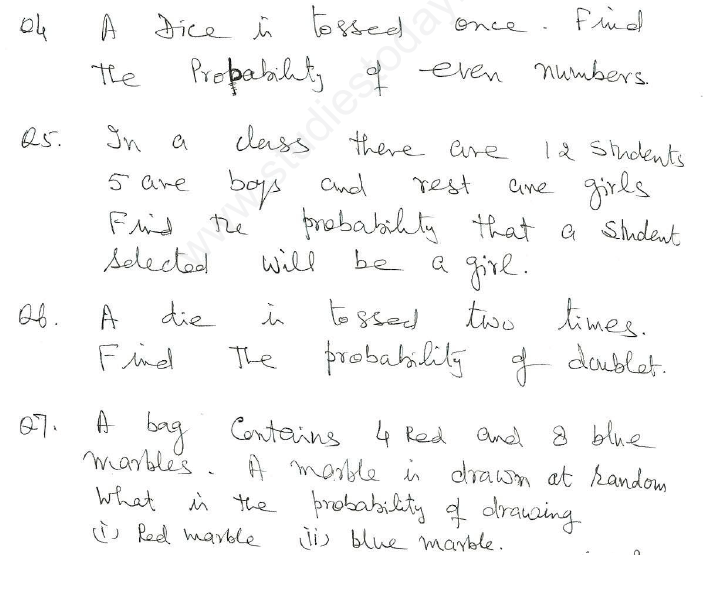 Q4 A Dice is tossed once. Find
the Probability of even numbers.
Q5. In a class there are 12 students
5 are boys and rest are girls
Find the probability that a student
selected will be a girl.
Q6. A die is tossed two times.
Find The probability of doublet.
Q7. A bag Contains 4 Red and 8 blue
marbles. A marble is drawn at random
What is the probability of drawing
(i) Red marble (ii) blue marble.
www.studiestoday